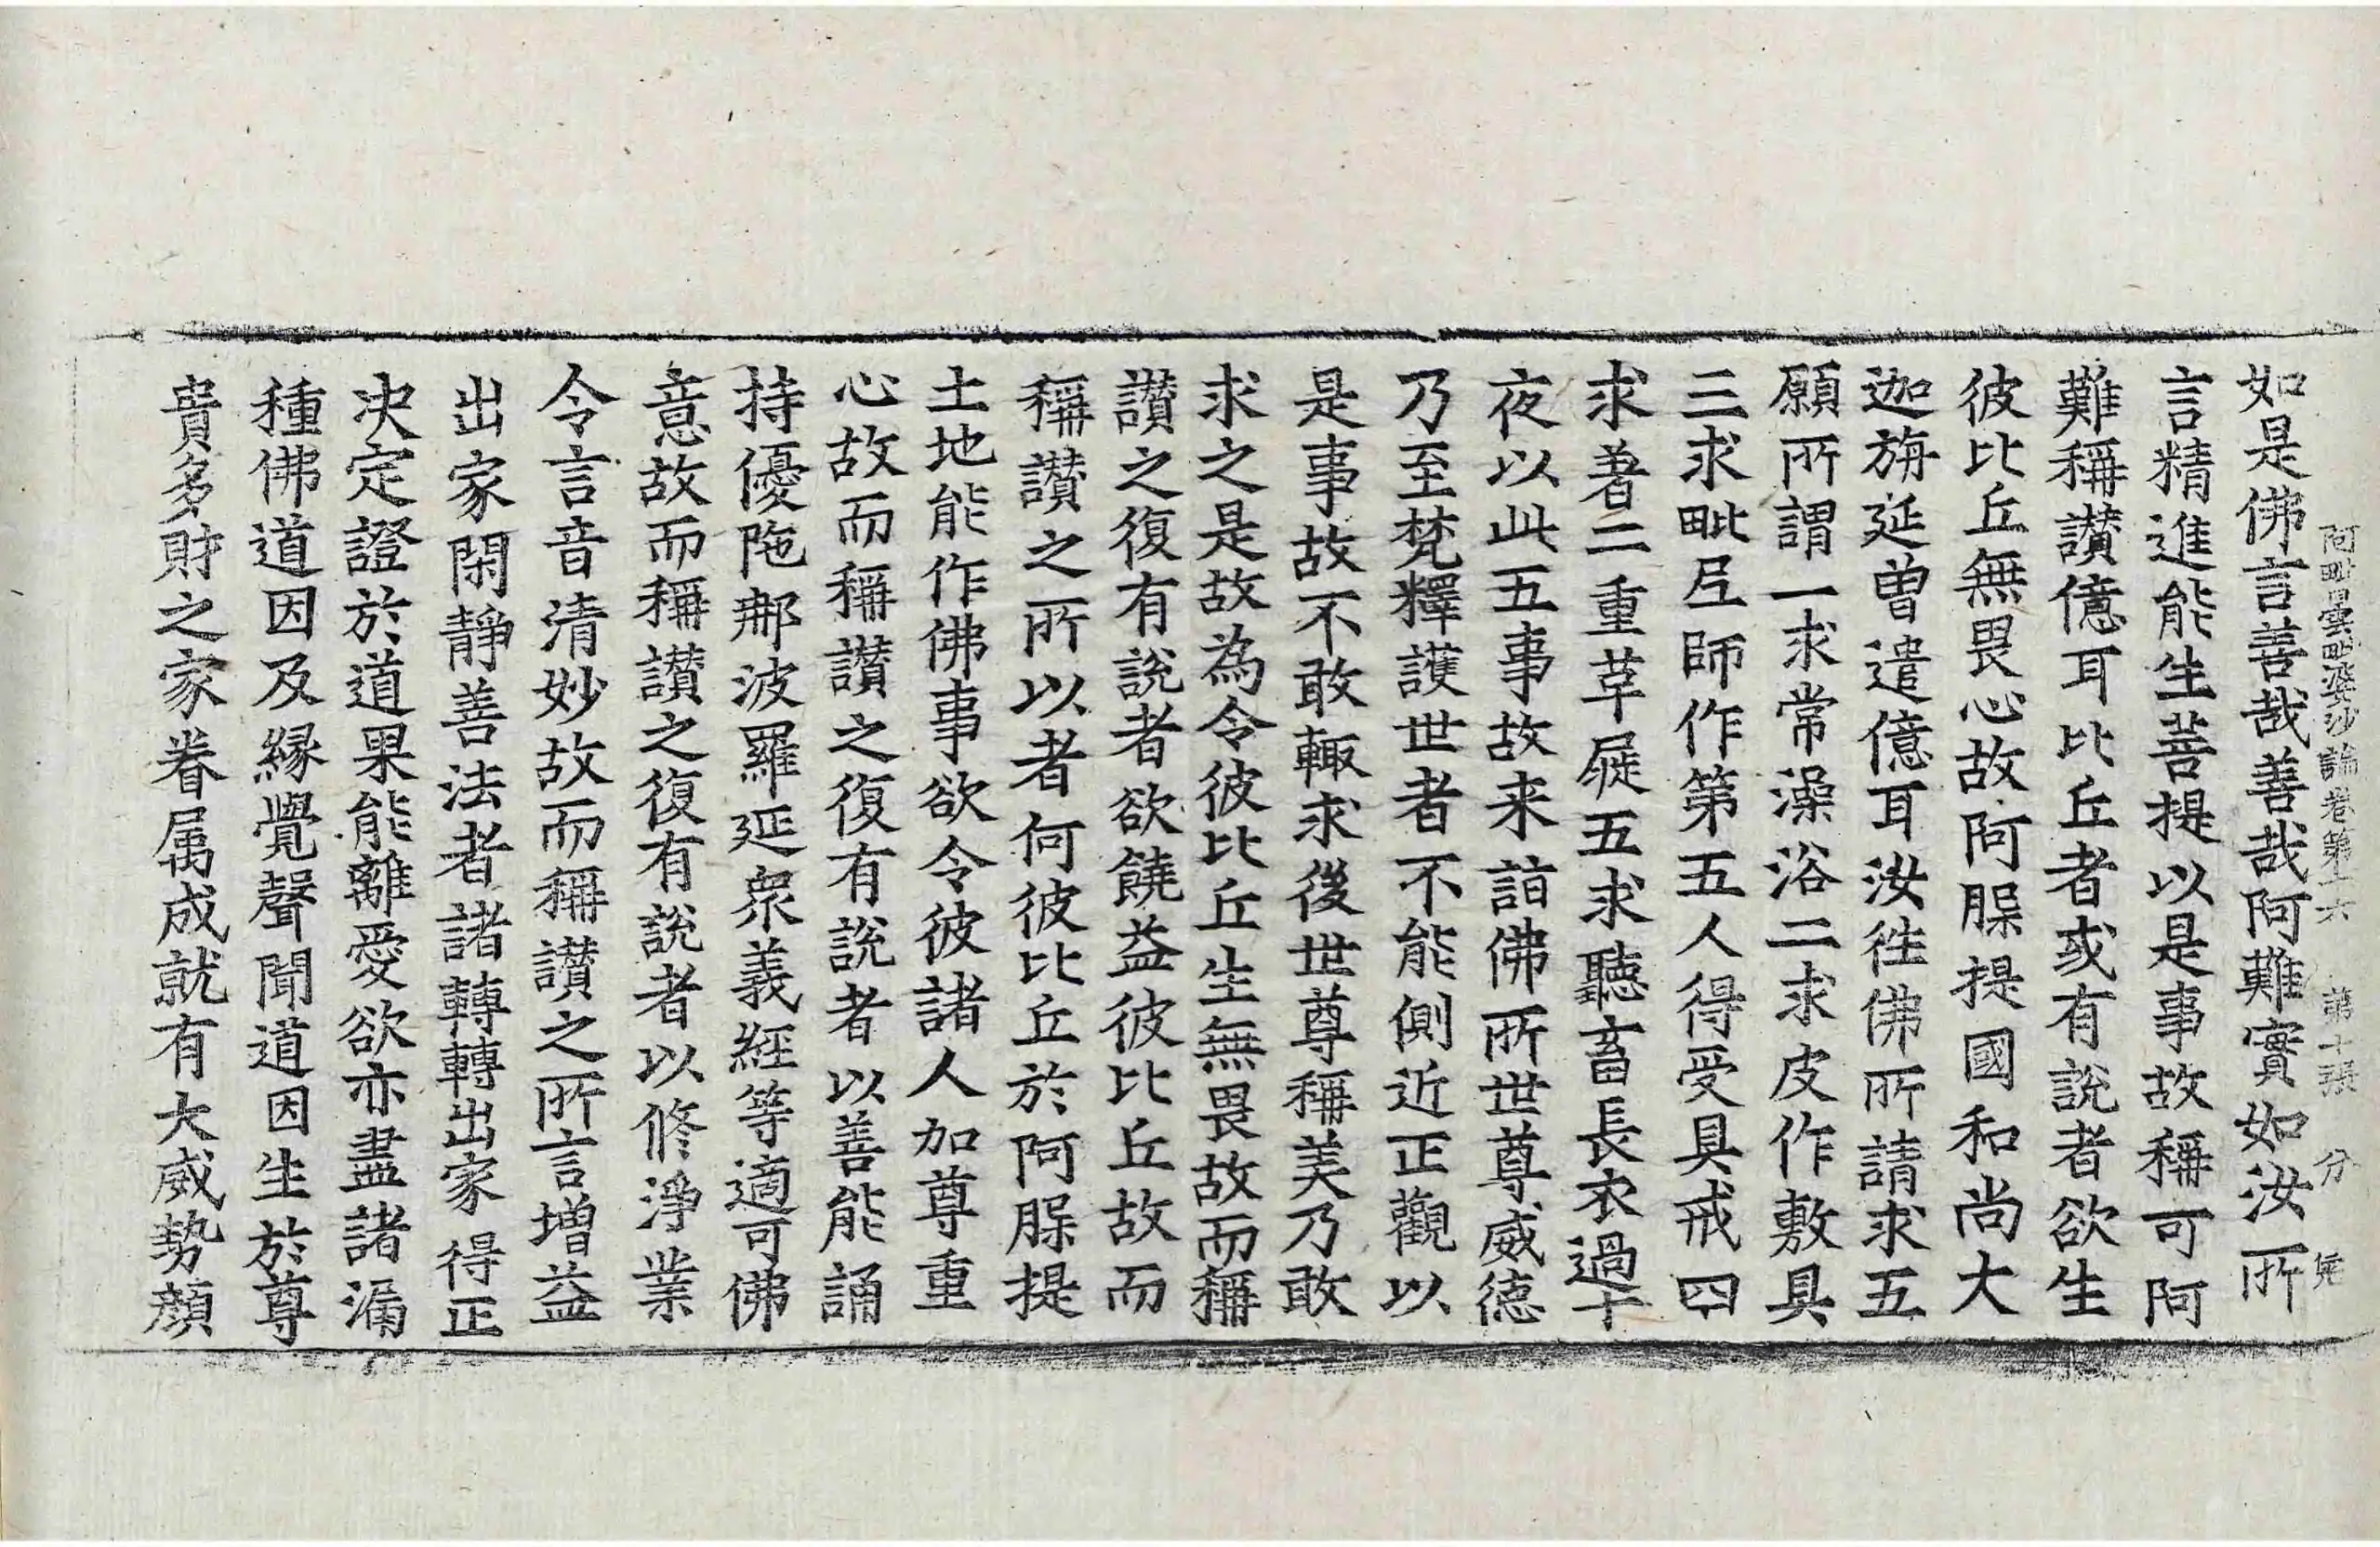 阿毗曇毗婆沙論卷第十六 第十張 分 完
如是佛言善哉善哉阿難實如汝所
言精進能生菩提以是事故稱可阿
難稱讃億耳比丘者或有說者欲生
彼比丘無畏心故阿䐗提國和尚大
迦旃延曾遣億耳汝徃佛所請求五
願所謂一求常澡浴二求皮作敷具
三求毗尼師作第五人得受具戒四
求著二重革屣五求聽畜長衣過十
夜以此五事故来詣佛所世尊威德
乃至梵釋護世者不能側近正觀以
是事故不敢輙求後世尊稱美乃敢
求之是故為令彼比丘生無畏故而稱
讃之復有說者欲饒益彼比丘故而
稱讃之所以者何彼比丘於阿䐗提
土地能作佛事欲令彼諸人加尊重
心故而稱讃之復有說者以善能誦
持優陁那波羅延衆義經等適可佛
意故而稱讃之復有說者以修淨業
令言音清妙故而稱讃之所言增益
出家閑靜善法者諸轉轉出家得正
决定證於道果能離愛欲亦盡諸漏
種佛道因及緣覺聲聞道因生於尊
貴多財之家眷属成就有大威勢顔